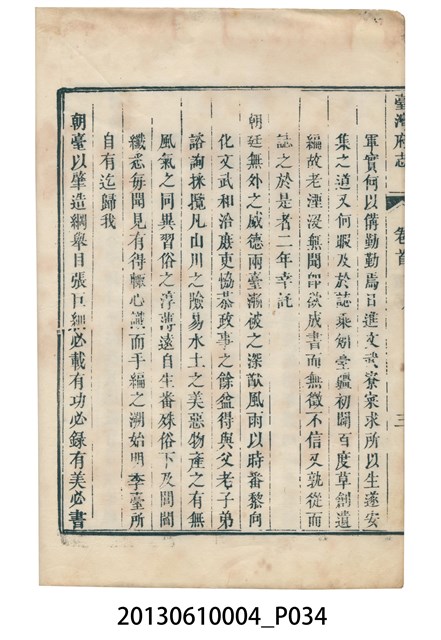 臺灣府志 卷首 三
軍實何以備勤勤焉日進文武寮寀求所以生遂安
集之道又何暇及於誌乘矧臺疆初闢百度草創遺
編故老湮沒無聞卽欲成書而無徵不信又孰從而
誌之於是者二年幸託
朝廷無外之威德兩臺漸被之深猷風雨以時番黎向
化文武和洽庶吏恊恭政事之餘益得與父老子弟
諮詢採攬凡山川之險易水土之美惡物產之有無
風氣之同異習俗之淳薄遠自生番殊俗下及閭閻
纖悉每聞見有得輒心識而手編之溯始明季臺所
自有迄歸我
朝臺以肇造綱舉目張巨細必載有功必錄有美必書
20130610004_P034